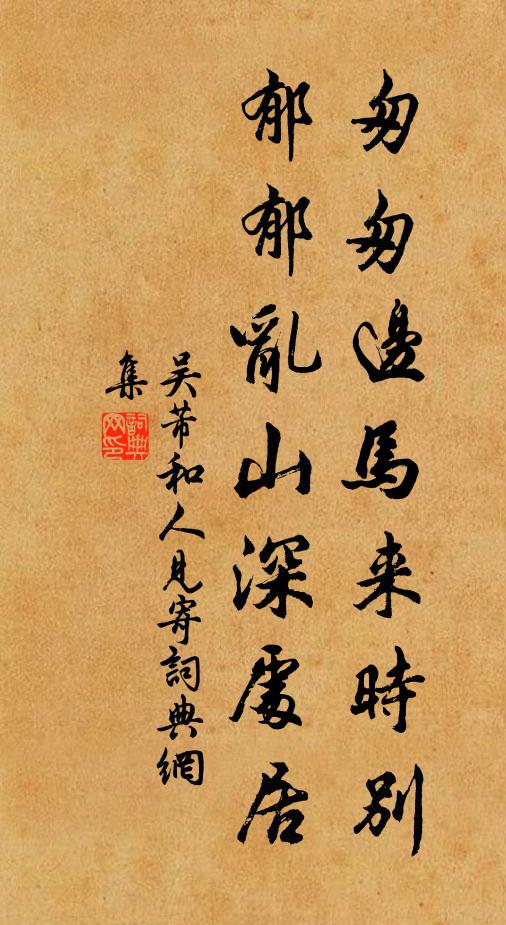 匆匆邊馬來時別
郁郁亂山深處居
吴芾和人見寄詞典網
集
詞典
网印